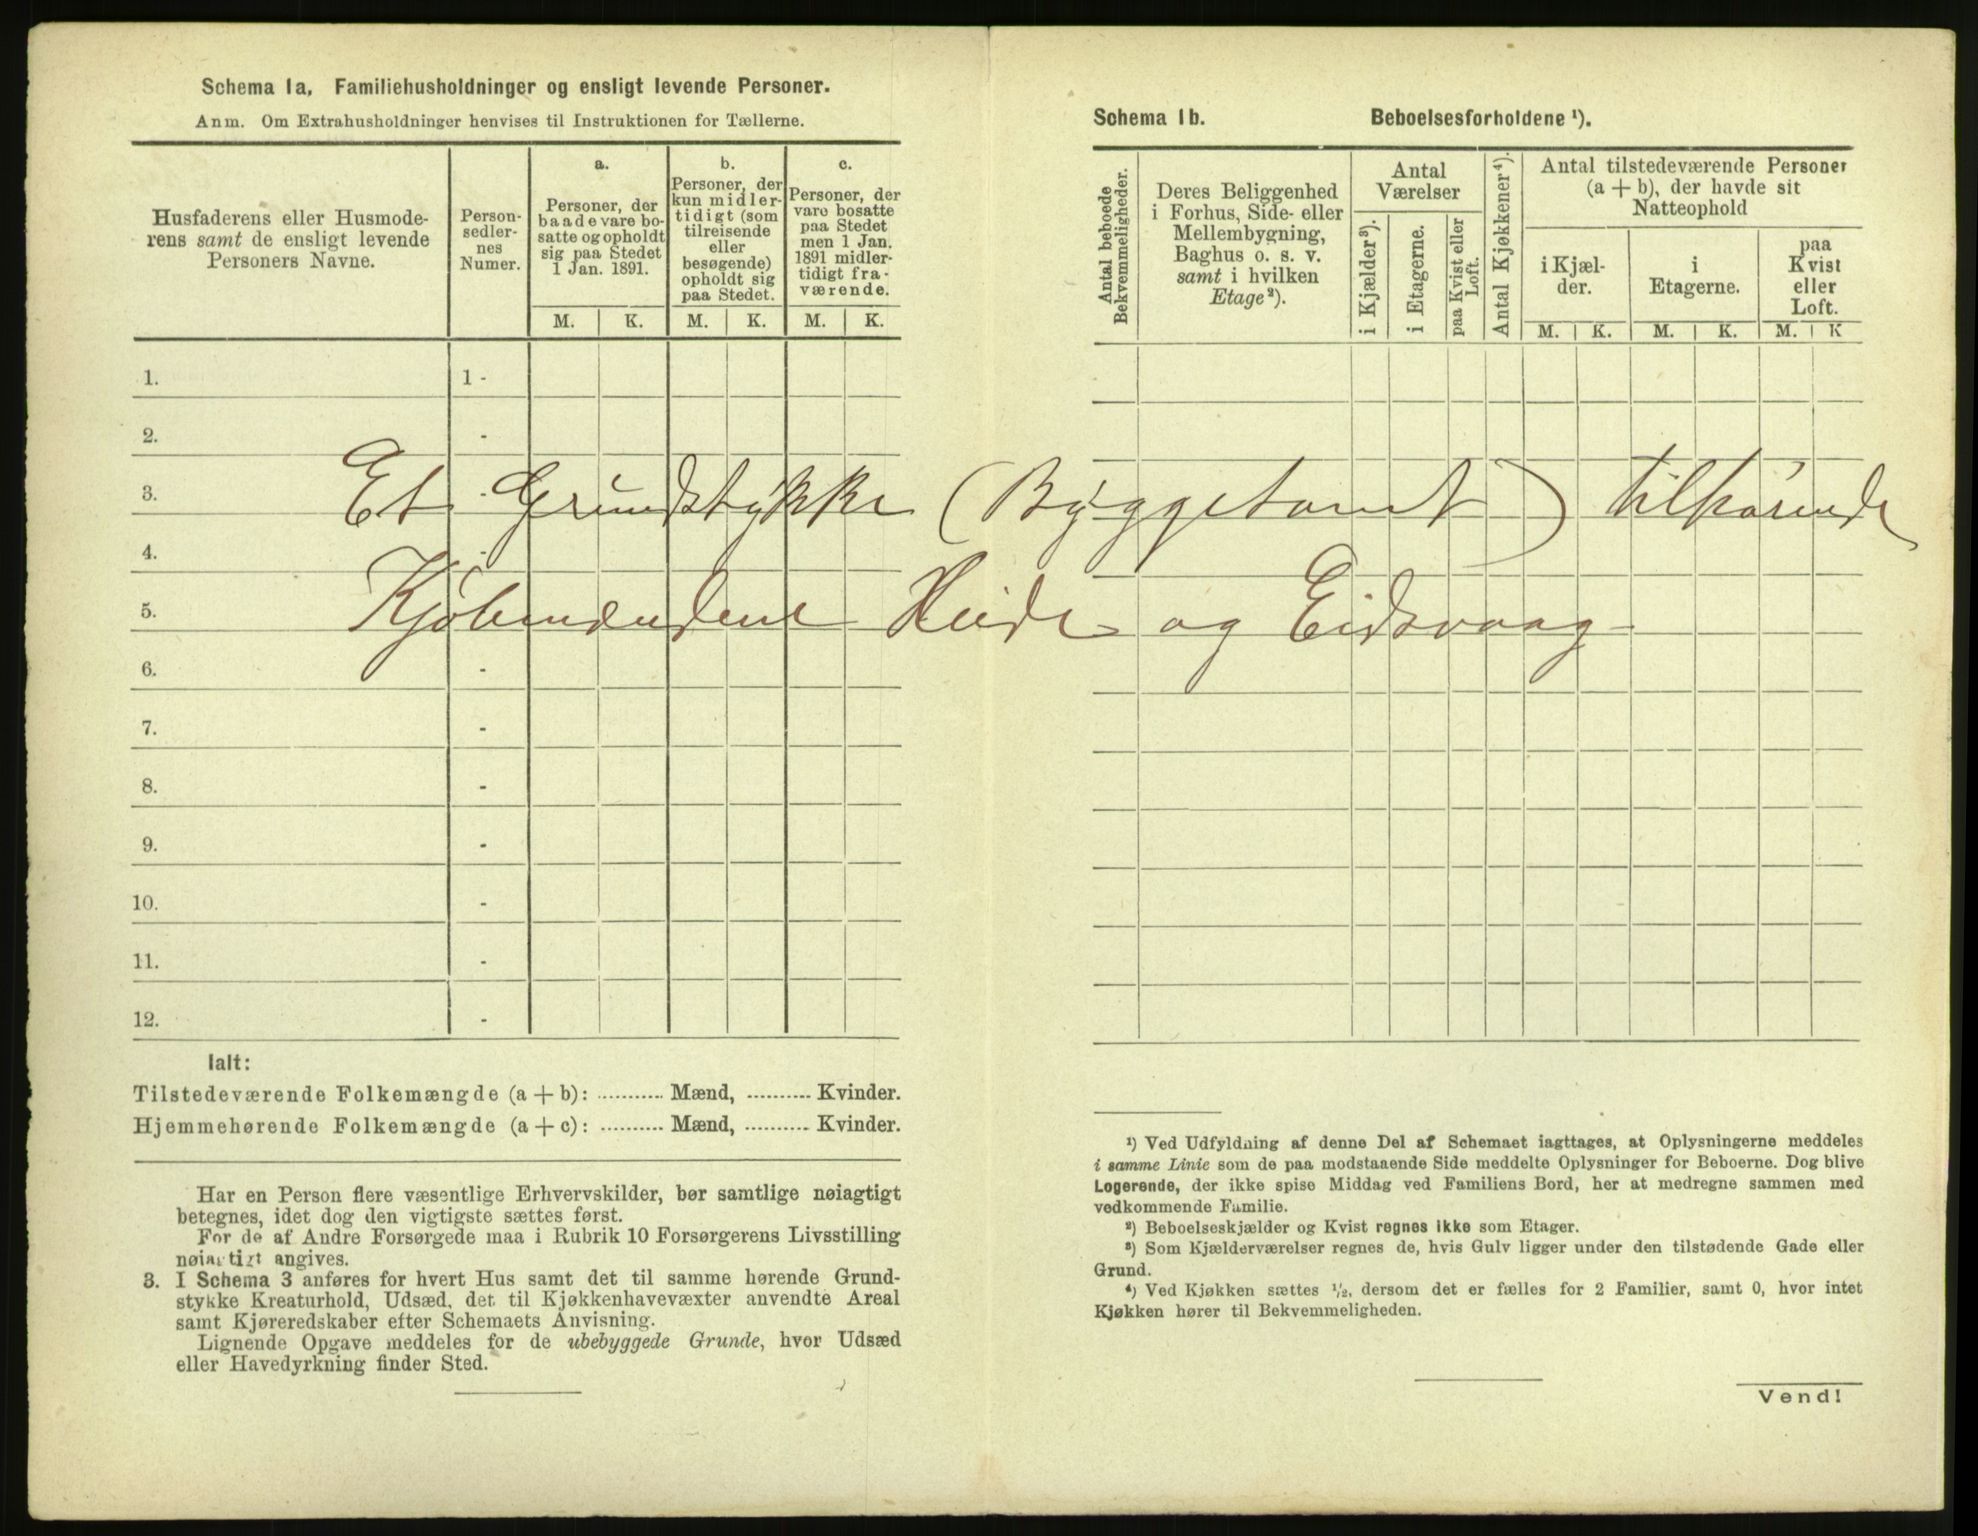 Schema 1a. Familiehusholdninger og ensligt levende Personer.
Anm. Om Extrahusholdninger henvises til Instruktionen for Tællerne.
Husfaderens eller Husmode-
rens samt de ensligt levende
Personers Navne.
Person-
sedler-
nes
Numer.
a.
Personer, der
baade vare bo-
satte og opholdt
sig paa Stedet
1 Jan. 1891.
b.
Personer, der
kun midler-
tidigt (som
tilreisende
eller
besøgende)
opholdt sig
paa Stedet.
c.
Personer, der
vare bosatte
paa Stedet
men 1 Jan.
1891 midler-
tidigt fra-
værende.
M. K. M. K. M. K.
1. 1 -
2. -
3. -
4. -
5.
6. -
7. -
8. -
9. -
10. -
11. -
12. -
Et Grundstykke (Byggetomt) tilhørende
Kjøbmændene Heide og Eidsvaag
Ialt:
Tilstedeværende Folkemængde (a + b): ........... Mænd, ........... Kvinder.
Hjemmehørende Folkemængde (a + c): ........... Mænd, ........... Kvinder.
Har en Person flere væsentlige Erhvervskilder, bør samtlige nøiagtigt
betegnes, idet dog den vigtigste sættes først.
For de af Andre Forsørgede maa i Rubrik 10 Forsørgerens Livsstilling
nøiagtigt angives.
3. I Schema 3 anføres for hvert Hus samt det til samme hørende Grund-
stykke Kreaturhold, Udsæd, det til Kjøkkenhavevæxter anvendte Areal
samt Kjøreredskaber efter Schemaets Anvisning.
Lignende Opgave meddeles for de ubebyggede Grunde, hvor Udsæd
eller Havedyrkning finder Sted.
Schema 1b. Beboelsesforholdene ¹).
Antal beboede
Bekvemmeligheder.
Deres Beliggenhed
i Forhus, Side- eller
Mellembygning,
Baghus o. s. v.
samt i hvilken
Etage ²).
Antal
Værelser
i Kjælder ³).
i Etagerne.
paa Kvist eller
Loft.
Antal Kjøkkener ⁴).
Antal tilstedeværende Personer
(a + b), der havde sit
Natteophold
i Kjæl-
der.
i
Etagerne.
paa
Kvist
eller
Loft.
M. K. M. K. M. K
¹) Ved Udfyldning af denne Del af Schemaet iagttages, at Oplysningerne meddeles
i samme Linie som de paa modstaaende Side meddelte Oplysninger for Beboerne. Dog blive
Logerende, der ikke spise Middag ved Familiens Bord, her at medregne sammen med
vedkommende Familie.
²) Beboelseskjælder og Kvist regnes ikke som Etager.
³) Som Kjælderværelser regnes de, hvis Gulv ligger under den tilstødende Gade eller
Grund.
⁴) Ved Kjøkken sættes ½, dersom det er fælles for 2 Familier, samt 0, hvor intet
Kjøkken hører til Bekvemmeligheden.
Vend!